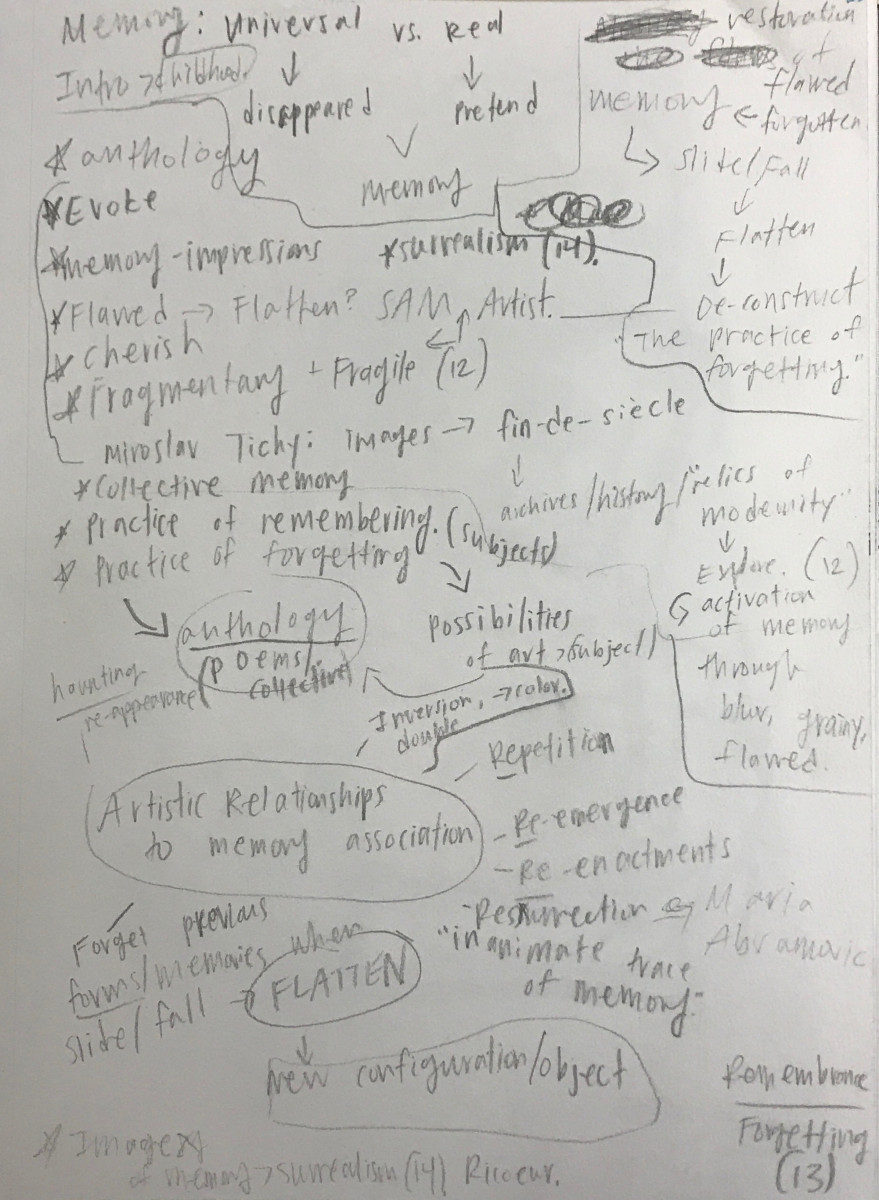 Memory: Universal vs. Real
Intro > Childhood.
disappeared
pretend
memory
restoration
of
flawed
memory ← forgotten
↳ slide/fall
↓
Flatten
↓
De-construct
"The practice of
forgetting."
* anthology
* Evoke
* memory-impressions
* surrealism (14).
* Flawed → Flatten? SAM Artist.
* cherish
* Fragmentary + Fragile (12)
Miroslav Tichy: images → fin-de-siècle
↓
archives/history/"relics of
modernity"
↓
Explore. (12)
↳ activation
of memory
through
blur, grainy,
flawed.
* Collective memory
* Practice of remembering. (subjects)
* Practice of forgetting
anthology
(poems/
collective)
possibilities
of art > (subject)
haunting
re-appearance
Inversion, → color.
double
- Repetition
Artistic Relationships
to memory association
- Re-emergence
- Re-enactments
- Resurrection Maria
Abramovic
"inanimate trace
of memory."
Forget previous
forms/memories when
slide/fall → FLATTEN
↓
New configuration/object
Remembrance
Forgetting
(13)
* Images
of memory > surrealism (14) Ricoeur.